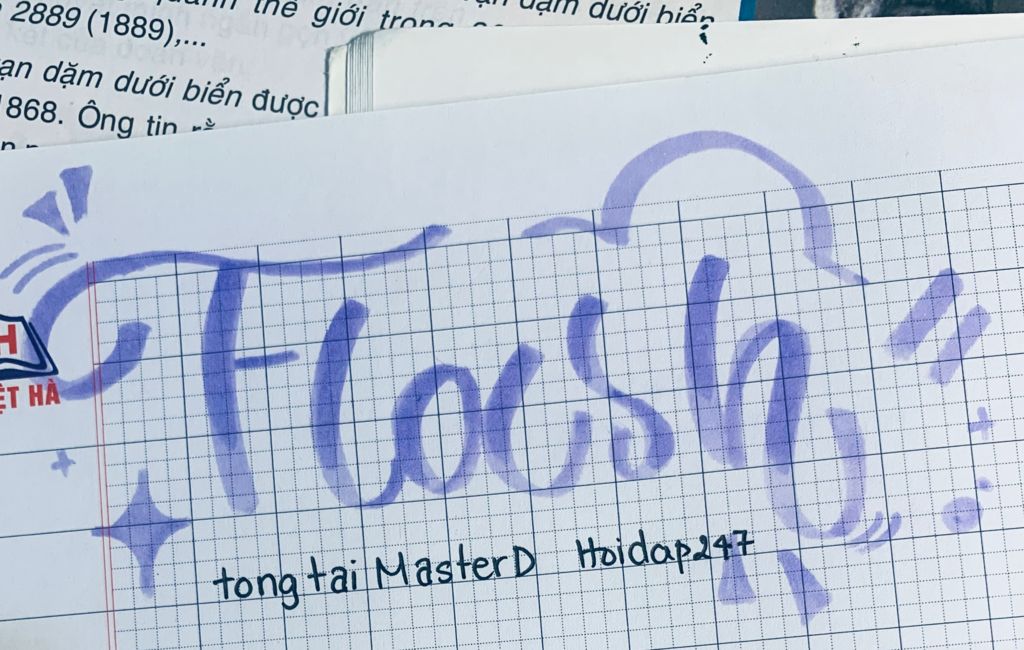 2889 (1889),...
thế giới trong
dặm dưới biển
dặm dưới biển được
1868. Ông tin rằ
H
ỆT HÀ
Flash
tong tai MasterD Hoidap247